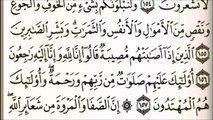 لَّا تَشْعُرُونَ ١٥٤ وَلَنَبْلُوَنَّكُم بِشَىْءٍ مِّنَ ٱلْخَوْفِ وَٱلْجُوعِ
وَنَقْصٍ مِّنَ ٱلْأَمْوَٰلِ وَٱلْأَنفُسِ وَٱلثَّمَرَٰتِ وَبَشِّرِ ٱلصَّٰبِرِينَ
١٥٥ ٱلَّذِينَ إِذَآ أَصَٰبَتْهُم مُّصِيبَةٌ قَالُوٓا۟ إِنَّا لِلَّهِ وَإِنَّآ إِلَيْهِ رَٰجِعُونَ
١٥٦ أُو۟لَٰٓئِكَ عَلَيْهِمْ صَلَوَٰتٌ مِّن رَّبِّهِمْ وَرَحْمَةٌ وَأُو۟لَٰٓئِكَ
هُمُ ٱلْمُهْتَدُونَ ١٥٧ إِنَّ ٱلصَّفَا وَٱلْمَرْوَةَ مِن شَعَآئِرِ ٱللَّهِ